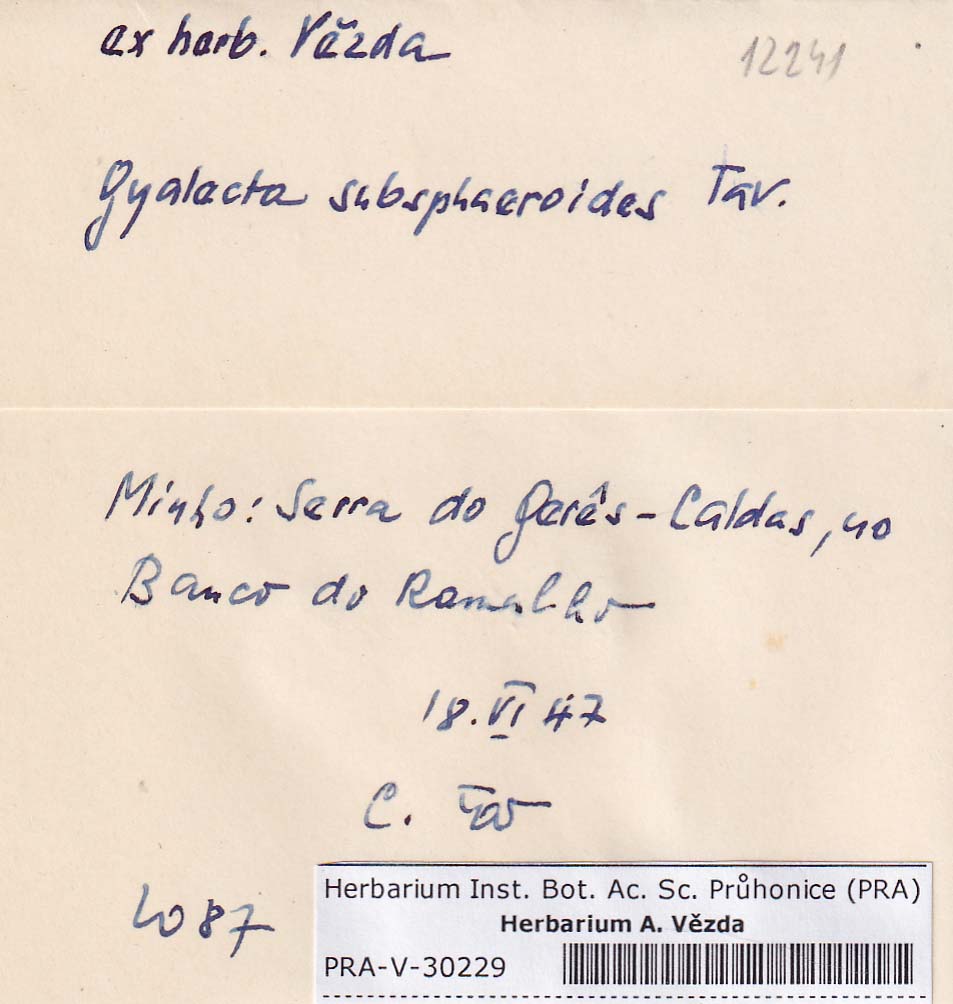 ex herb. Vězda
12241
Gyalecta subsphaeroides Tav.
Minho: Serra do Gerês-Caldas, no
Banco do Ramalho
18. VI 47
C. Tav
4087
Herbarium Inst. Bot. Ac. Sc. Průhonice (PRA)
Herbarium A. Vězda
PRA-V-30229